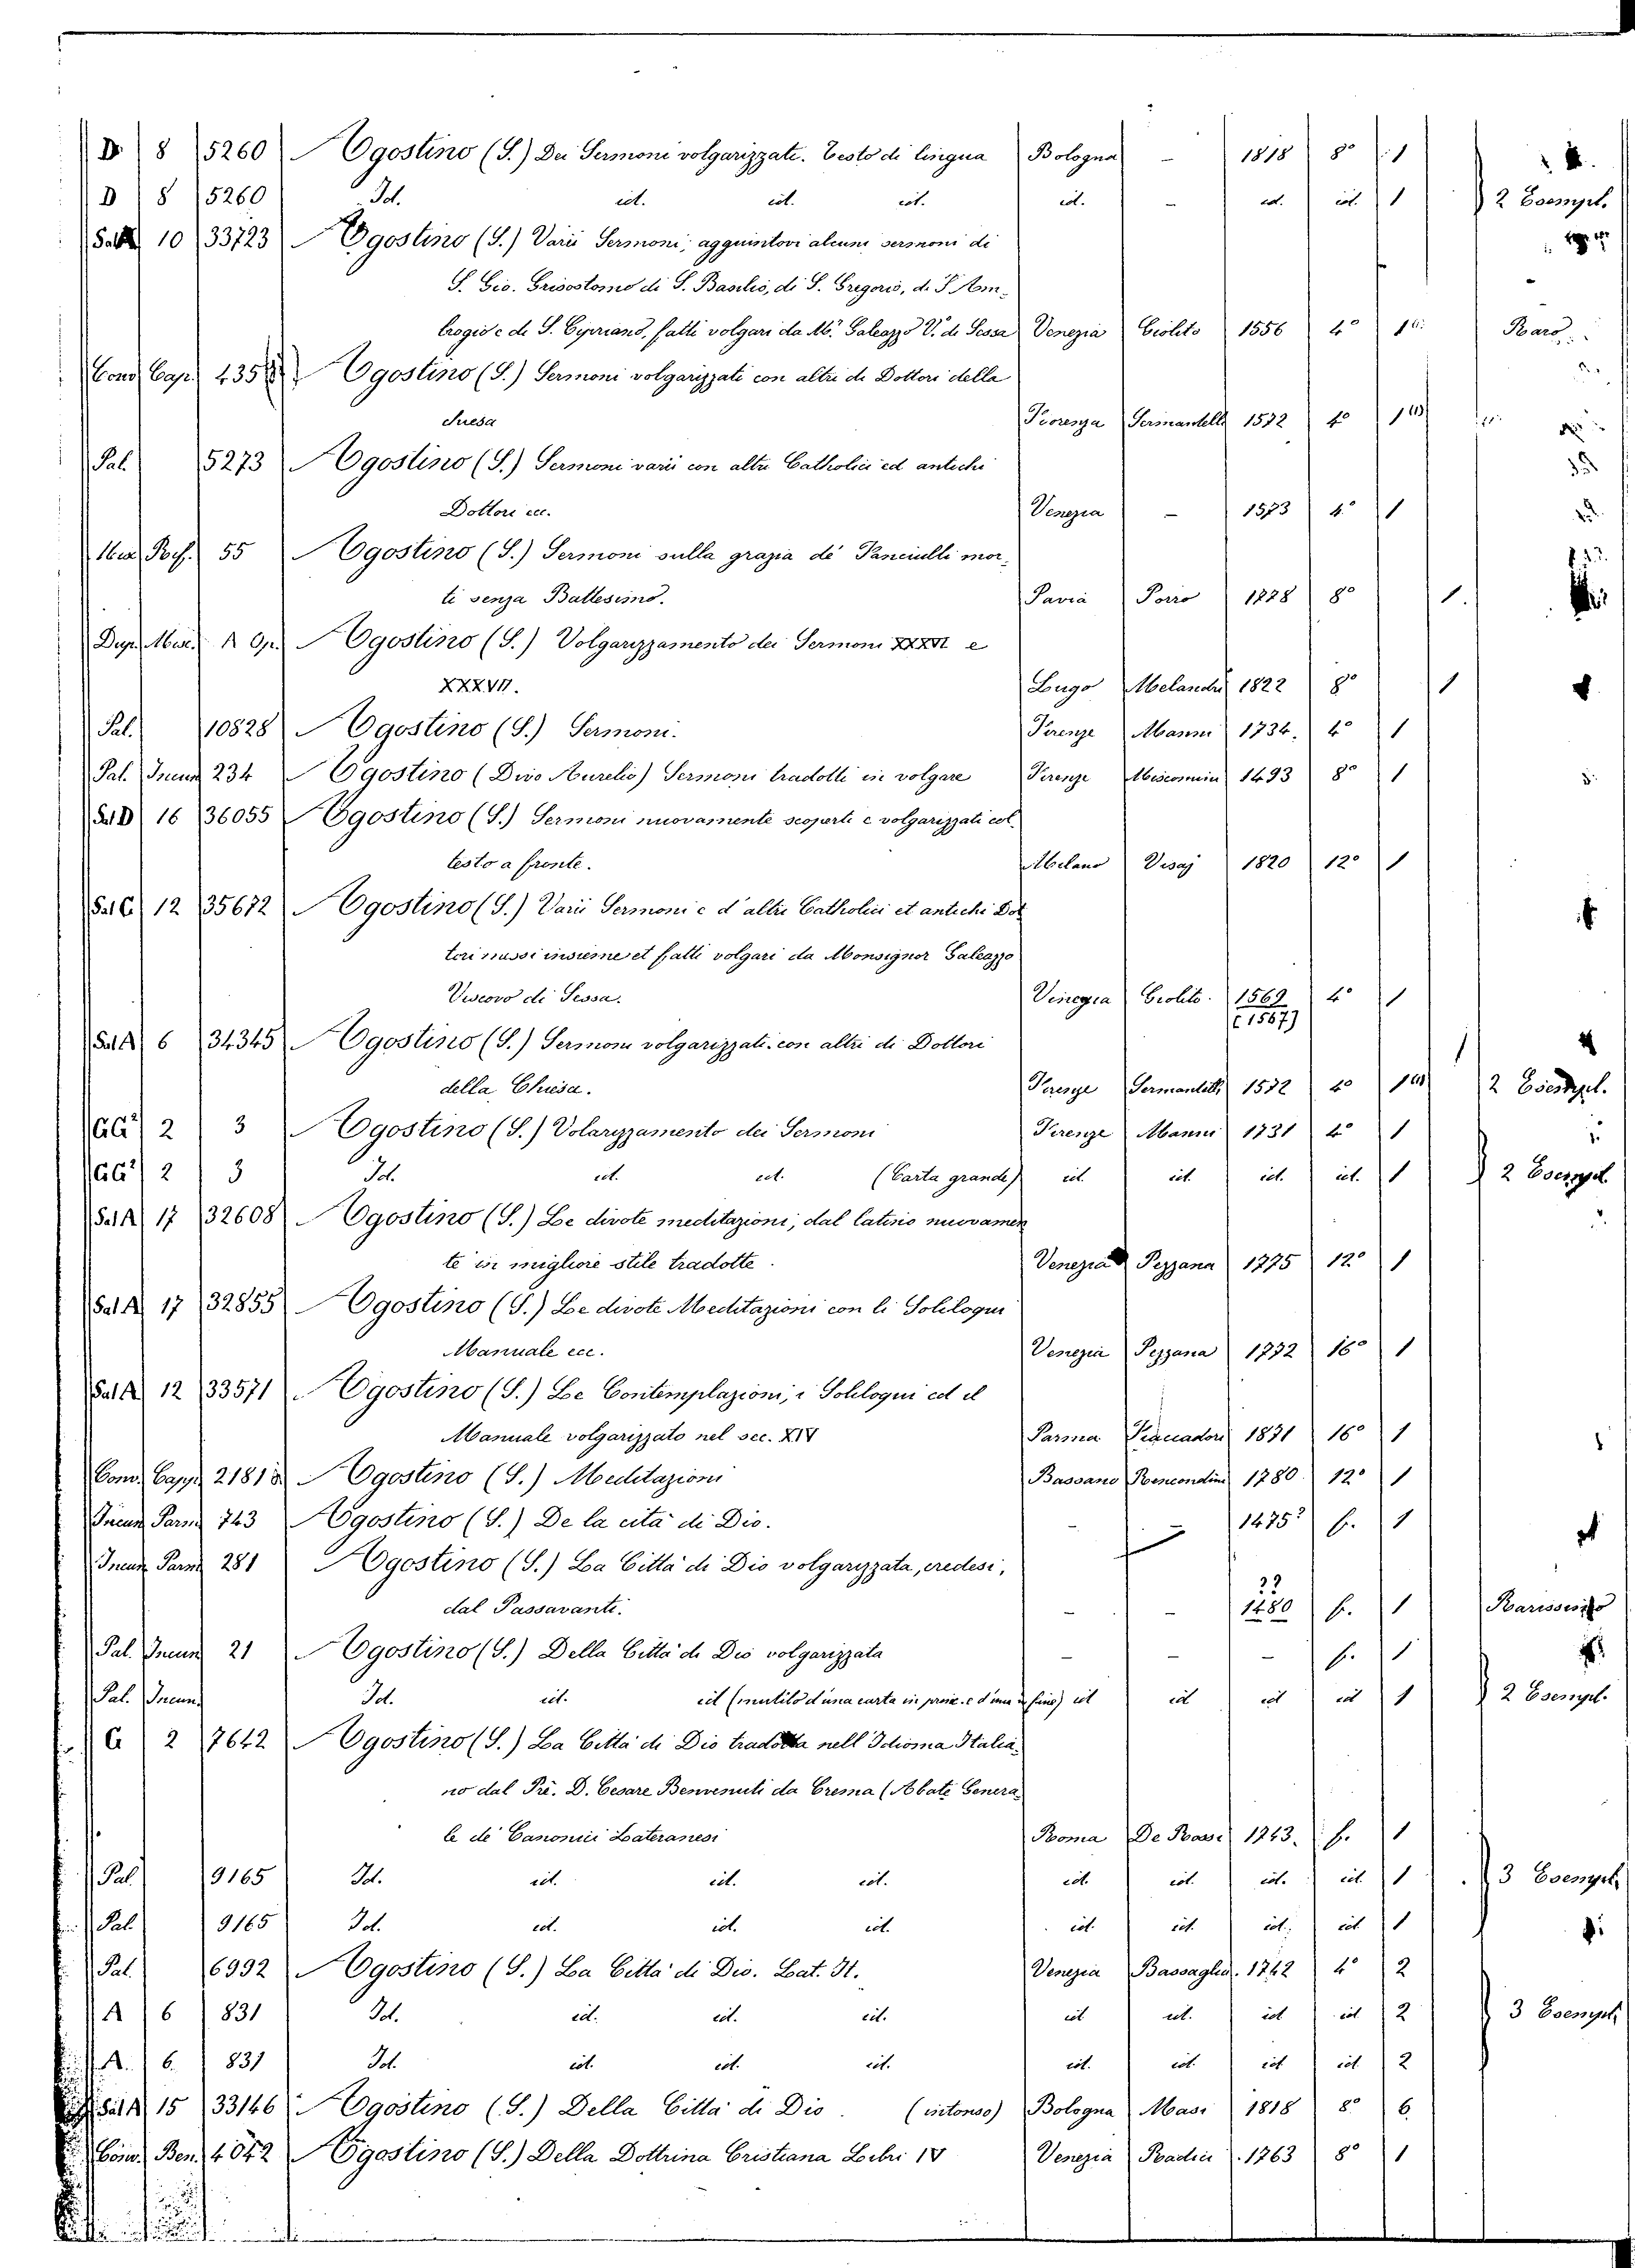 D 8 5260 Agostino (S.) Dei Sermoni volgarizzati. Testo di lingua Bologna - 1818 8° 1
D 8 5260 Id. id. id. id. id. - id. id. 1 2 Esempl.
Sal A 10 33723 Agostino (S.) Varii Sermoni; aggiuntovi alcuni sermoni di
S. Gio. Grisostomo di S. Basilio, di S. Gregorio, di S. Am-
brogio e di S. Cipriano, fatti volgari da M.r Galeazzo V. di Sessa Venezia Giolito 1556 4° 1 Raro
Conv Cap. Agostino (S.) Sermoni volgarizzati con altri di Dottori della
Chiesa Fiorenza Sermartelli 1572 4° 1
Pal. 5273 Agostino (S.) Sermoni varii con altri Catholici ed antichi
Dottori ecc. Venezia - 1573 4° 1
55 Agostino (S.) Sermoni sulla grazia de' Fanciulli mor-
ti senza Battesimo. Pavia Porro 1788 8° 1.
Dup. Mus. A Op. Agostino (S.) Volgarizzamento dei Sermoni XXXVI e
XXXVII. Lugo Melandri 1822 8° 1
Pal. 10828 Agostino (S.) Sermoni. Firenze Manni 1734. 4° 1
Pal. Incun 234 Agostino (Divo Aurelio) Sermoni tradotti in volgare Firenze Miscomini 1493 8° 1
Sal D 16 36055 Agostino (S.) Sermoni nuovamente scoperti e volgarizzati col
testo a fronte. Milano Visaj 1820 12° 1
Sal C 12 35672 Agostino (S.) Varii Sermoni e d'altri Catholici et antichi Dot
tori messi insieme et fatti volgari da Monsignor Galeazzo
Viscovo di Sessa. Vinegia Giolito. 1569 4° 1
(1567)
Sal A 6 34345 Agostino (S.) Sermoni volgarizzati con altri di Dottori
della Chiesa. Firenze Sermartelli 1572 4° 1 2 Esempl.
GG² 2 3 Agostino (S.) Volarizzamento dei Sermoni Firenze Manni 1731 4° 1
GG² 2 3 Id. id. id. (Carta grande) id. id. id. id. 1 2 Esempl.
Sal A 17 32608 Agostino (S.) Le divote meditazioni, dal latino nuovamen
te in migliore stile tradotte. Venezia Pezzana 1775 12° 1
Sal A 17 32855 Agostino (S.) Le divote Meditazioni con li Soliloqui
Manuale ecc. Venezia Pezzana 1772 16° 1
Sal A 12 33571 Agostino (S.) Le Contemplazioni, i Soliloqui ed il
Manuale volgarizzato nel sec. XIV Parma Fiaccadori 1831 16° 1
Conv. Capp. Agostino (S.) Meditazioni Bassano Remondini 1780 12° 1
Incun Parm 743 Agostino (S.) De la cita di Dio. - - 1475? f. 1
Incun Parm 281 Agostino (S.) La Città di Dio volgarizzata, credesi,
dal Passavanti. - - ?? 1480 f. 1 Rarissimo
Pal. Incun 21 Agostino (S.) Della Città di Dio volgarizzata - - - f. 1
Pal. Incun Id. id. id (mutilo d'una carta in princ. e d'una in fine) id id id id 1 2 Esempl.
G 2 7642 Agostino (S.) La Città di Dio tradotta nell Idioma Italia-
no dal Pre. D. Cesare Benvenuti da Crema (Abate Genera-
le de' Canonici Lateranesi Roma De Rossi 1743. f. 1
Pal 9165 Id. id. id. id. id. id. id. id. 1 3 Esempl.
Pal 9165 Id. id. id. id. id. id. id. id 1
Pal. 6992 Agostino (S.) La Città di Dio. Lat. It. Venezia Bassaglia. 1742 4° 2
A 6 831 Id. id. id. id. id id. id id. 2 3 Esempl.
A. 6. 831 Id. id. id. id. id. id. id id. 2
Sal A 15 33146 Agostino (S.) Della Città di Dio. (intonso) Bologna Masi 1818 8° 6
Conv. Ben. 4042 Agostino (S.) Della Dottrina Cristiana Libri IV Venezia Radici 1763 8° 1